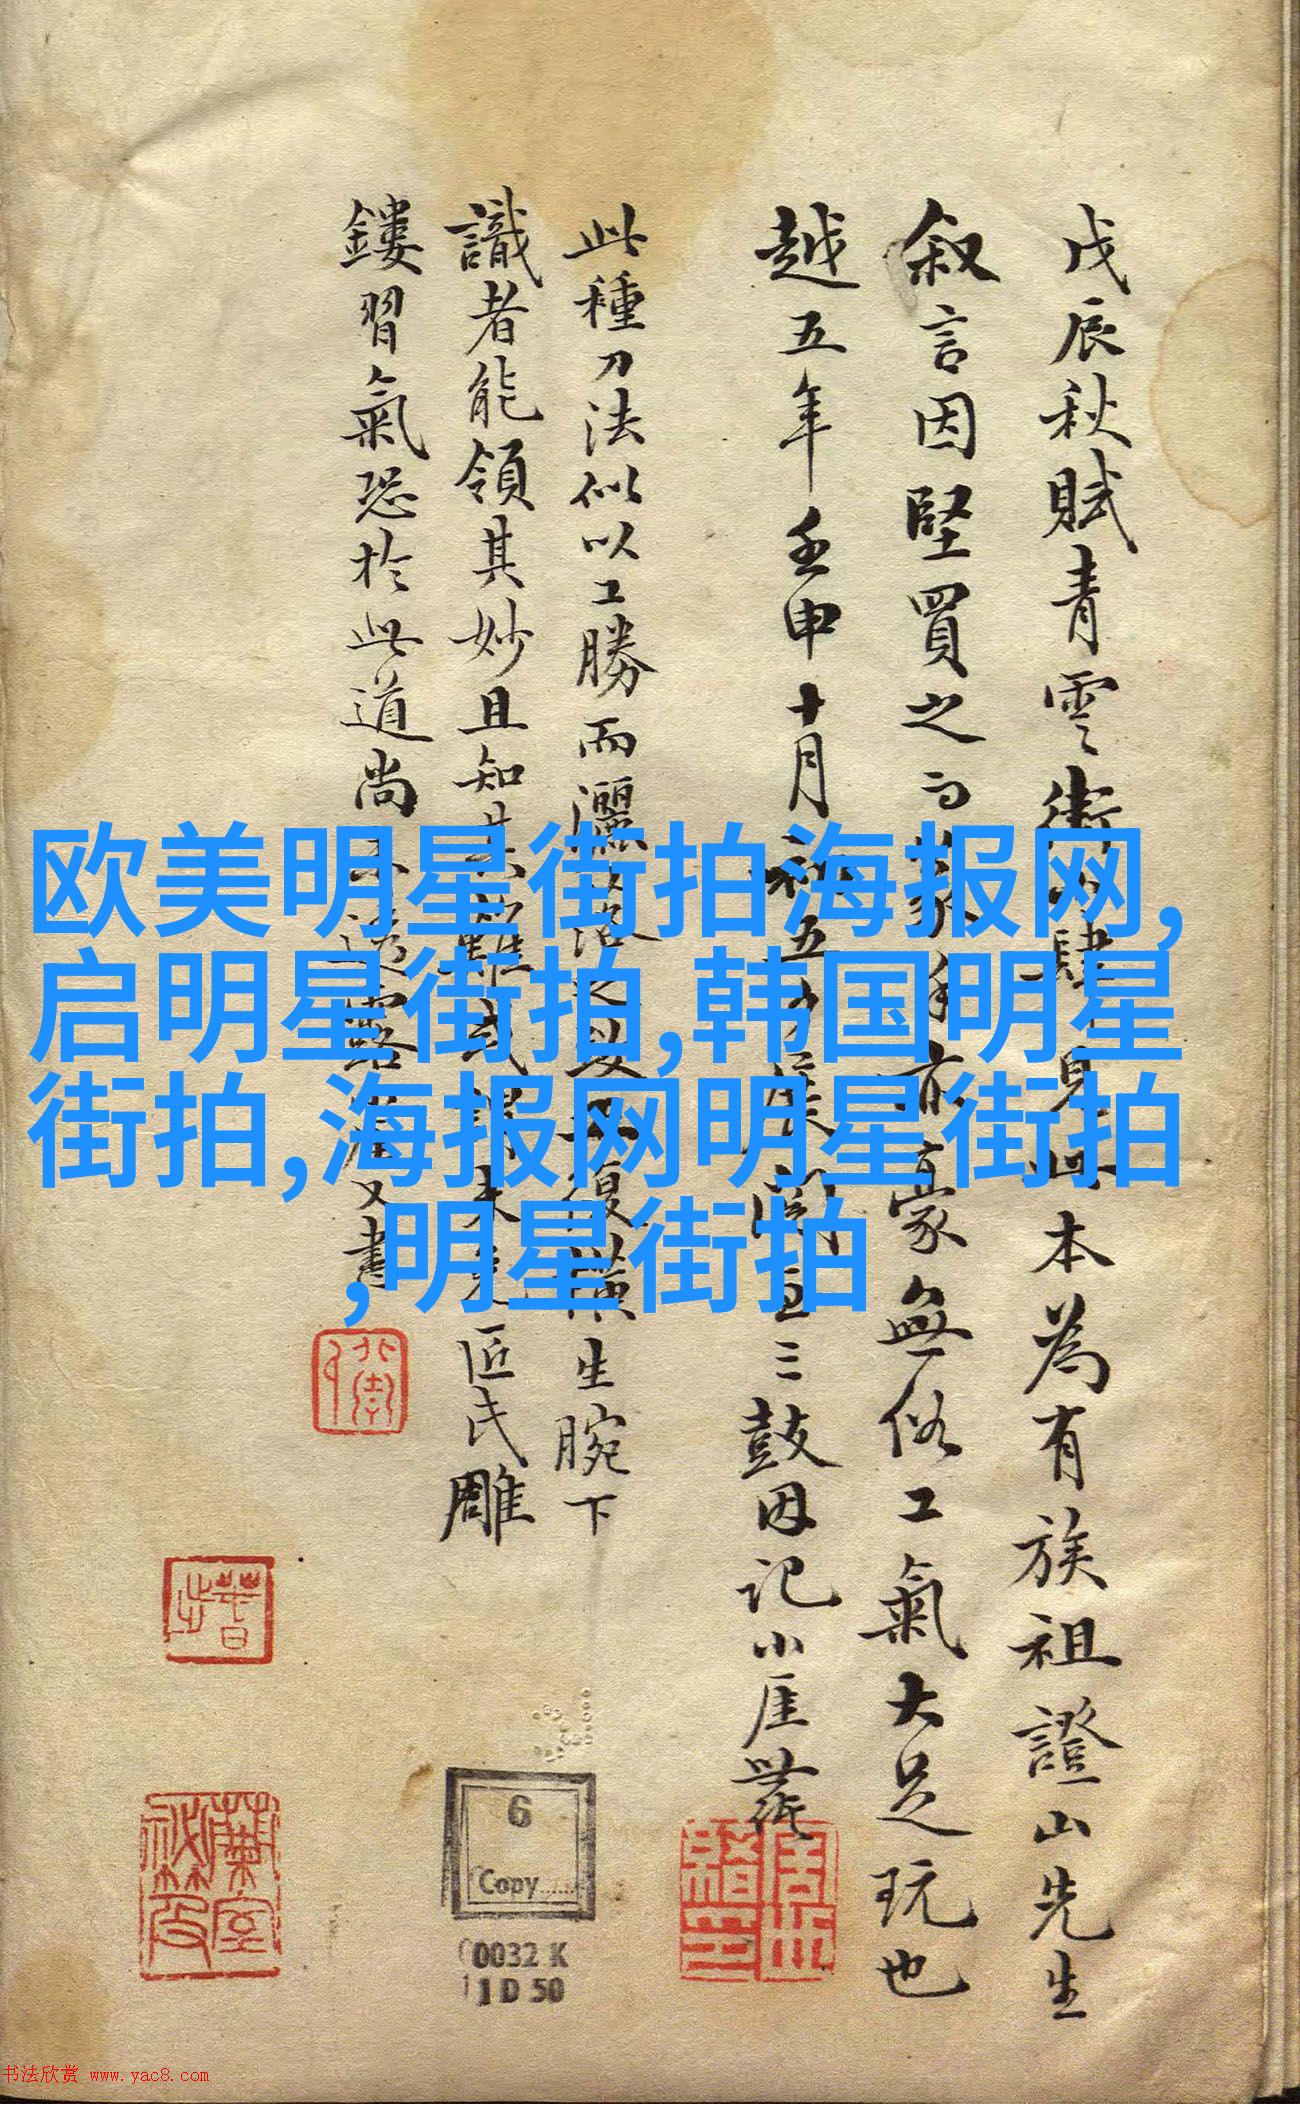 戊辰秋賦青雲街書肆見此本為有族祖證山先生
叙言因堅買之而裝手亦豪無俗工氣大足玩也
越五年壬申十月初五夕三鼓因記小厓
此種刀法似以工勝而灑落之致又復橫生腕下
識者能領其妙且知其難或誤未免匠氏雕
鏤習氣恐於此道尚未透露書
欧美明星街拍海报网,
启明星街拍,韩国明星
街拍,海报网明星街拍
,明星街拍
6
Copy
0032 K
1 D 50
书法欣赏 www.yac8.com